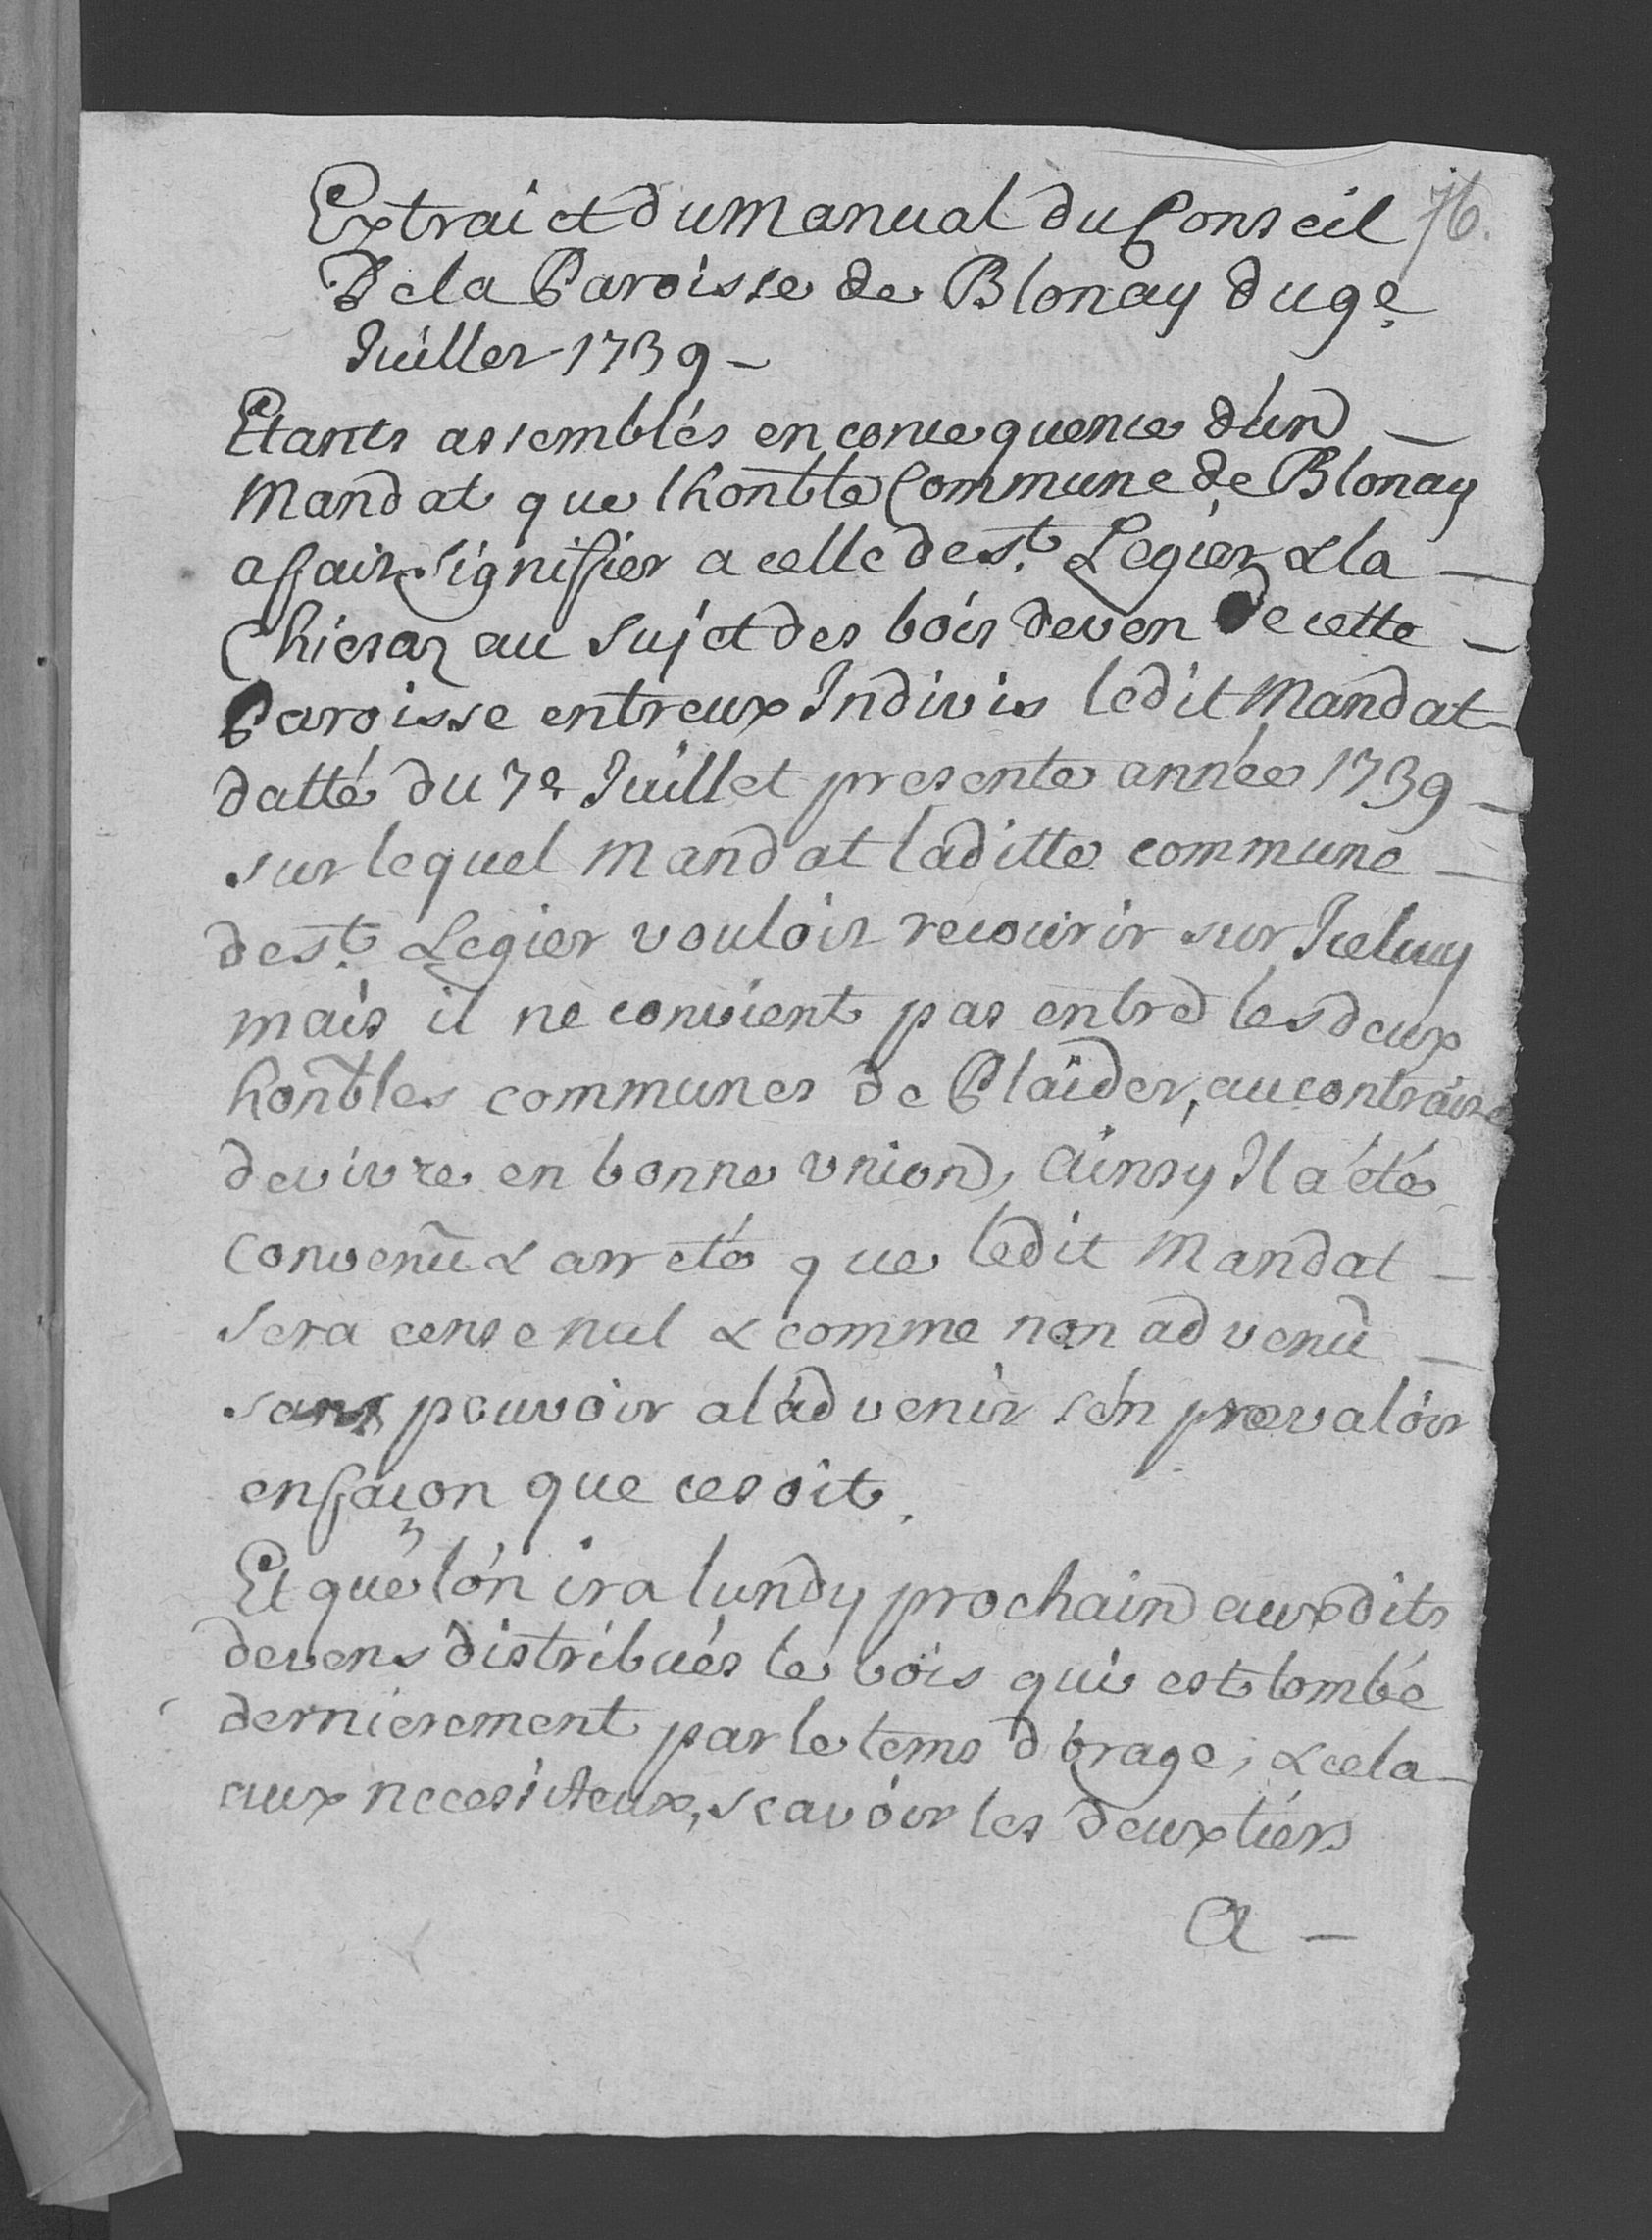 Extraict du Manual du Conseil 76.
De la Paroisse de Blonay du 9e
Juillet 1739 -
Etants assemblés en consequence d'un -
Mandat que l'honble Commune de Blonay
a fait signiffier a celle de st. Legier & la -
Chiesaz au sujet des bois deven de cette -
Paroisse entreux Indivis ledit Mandat
datté du 7e Juillet presente année 1739 -
sur lequel Mandat laditte commune -
de st. Legier vouloit recourir sur Iceluy
mais il ne convient pas entre les deux
honbles communes de Plaider, au contraire
de vivre en bonne vnion, ainsy Il a été
convenû & arreté que ledit Mandat -
sera censé nul & comme non advenû -
sans pouvoir a l'advenir s'en prevaloir
en façon que ce soit.
Et que l'on ira lundy prochain auxdits
devens distribués le bois qui est tombé
dernierement par le tems d'orage, & cela -
aux necessiteux, scavoir les deux tiers
a -